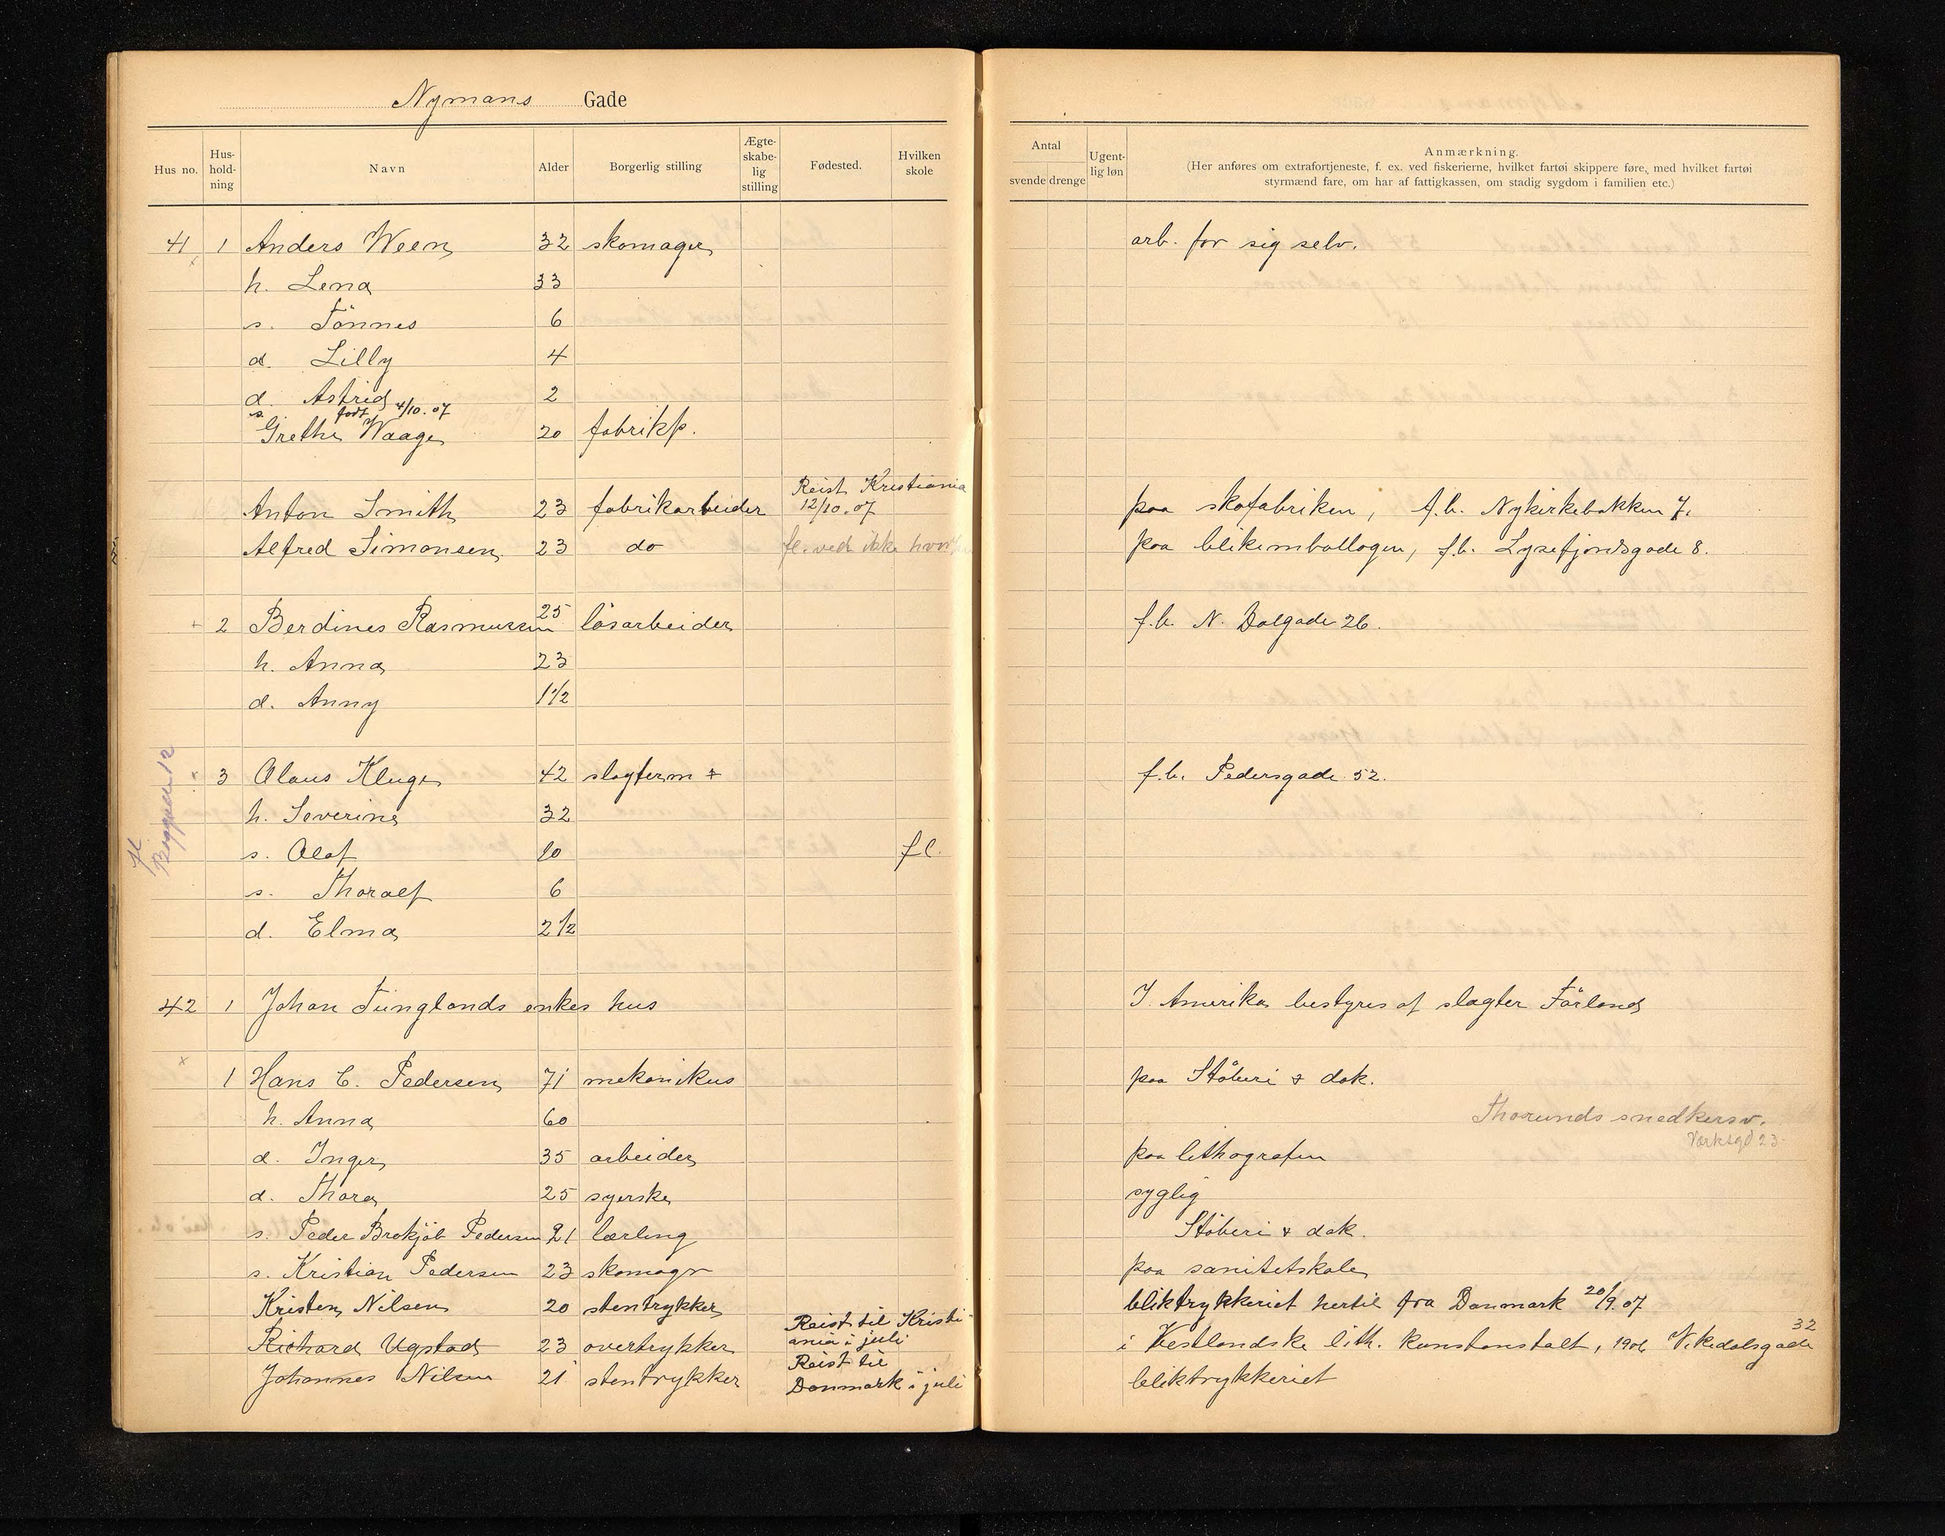 Nymans Gade
Hus no. Hus-hold-ning Navn Alder Borgerlig stilling Ægte-skabe-lig stilling Fødested. Hvilken skole
Antal svende drenge Ugent-lig løn Anmærkning.
(Her anføres om extrafortjeneste, f. ex. ved fiskerierne, hvilket fartøi skippere føre, med hvilket fartøi
styrmænd fare, om har af fattigkassen, om stadig sygdom i familien etc.)
41 1 Anders Ween 32 skomager arb. for sig selv.
h. Lena 33
s. Tönnes 6
d. Lilly 4
d. Astrid 2
s. født 4/10.07
Grethe Waage 20 fabrikp.
Anton Smith 23 fabrikarbeider Reist Kristiania 12/10.07 paa skofabriken, f.b. Nykirkebakken 7.
Alfred Simonsen 23 do fl. ved ikke hvor paa blikemballagen, f.b. Lysefjordsgade 8.
2 Berdines Rasmussen 25 løsarbeider f.b. N. Dalgade 26.
h. Anna 23
d. Anny 1 1/2
3 Olaus Kluge 42 slagterm f.b. Pedersgade 52.
h. Severine 32
fl
s. Olaf 10 fl.
s. Thoralf 6
d. Elma 2 1/2
42 1 Johan Tunglands enkes hus I Amerika bestyres af slagter Förland
1 Hans C. Pedersen 71 mekanikus paa Støberi & dok.
h. Anna 60 Thorunds snedkersv.
Verksgd 23
d. Inger 35 arbeider paa lithografen
d. Thora 25 syerske syglig
s. Peder Brekjöb Pedersen 21 lærling Støberi & dok.
s. Kristian Pedersen 23 skomager paa sanitetskole
Kristen Nilsen 20 stentrykker bliktrykkeriet hertil fra Danmark 20/9.07
Richard Ugstad 23 overtrykker Reist til Kristiania i juli i Vestlandske lith. kunstanstalt, 1906 Vikedalsgade 32
Johannes Nilsen 21 stentrykker Reist til Danmark i juli bliktrykkeriet